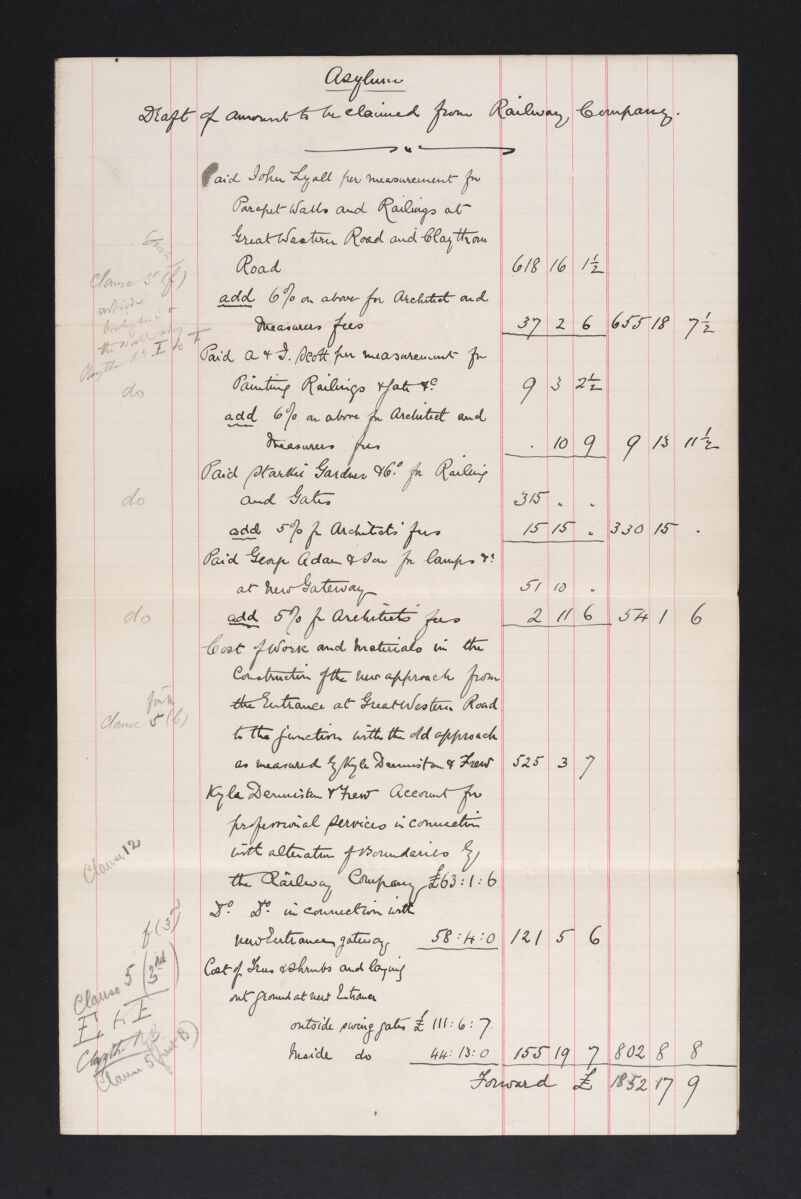 Asylum
Draft of amount to be claimed from Railway Company.
Paid John Lyall per measurement for
Parapet Walls and Railings at
Great Western Road and Claythorn
Road 618 16 1½
Clause 5 (f)
add 6% on above for Architect and
Measurers fees 37 2 6 655 18 7½
Paid A & J. Scott per measurement for
do Painting Railings & Gate &c 9 3 2½
add 6% on above for Architect and
Measurers fees . 10 9 9 13 11½
Paid Starkie Gardner & Co. for Railing
do and Gates 315 " "
add 5% for Architects' fees 15 15 " 330 15 .
Paid George Adam & Son for lamps &c
at New Gateway 51 10 "
do add 5% for Architects' fees 2 11 6 54 1 6
Cost of Work and Materials in the
Construction of the new approach from
the Entrance at Great Western Road
Clause 5 (b)
to the junction with the old approach
as measured by Kyle Dennison & Frew 525 3 7
Kyle Dennison & Frew Account for
professional services in connection
Clause 12
with alteration of Boundaries by
the Railway Company £63:1:6
Do. Do. in connection with
new Entrance gateway 58:4:0 121 5 6
Clause 5 (3rd)
Cost of Trees & Shrubs and laying
out ground at new Entrance
outside swing gates £ 111:6:7
Inside do 44:13:0 155 19 7 802 8 8
Clayth. Rd
Clause 5 (first B)
Forward £ 1852 17 9